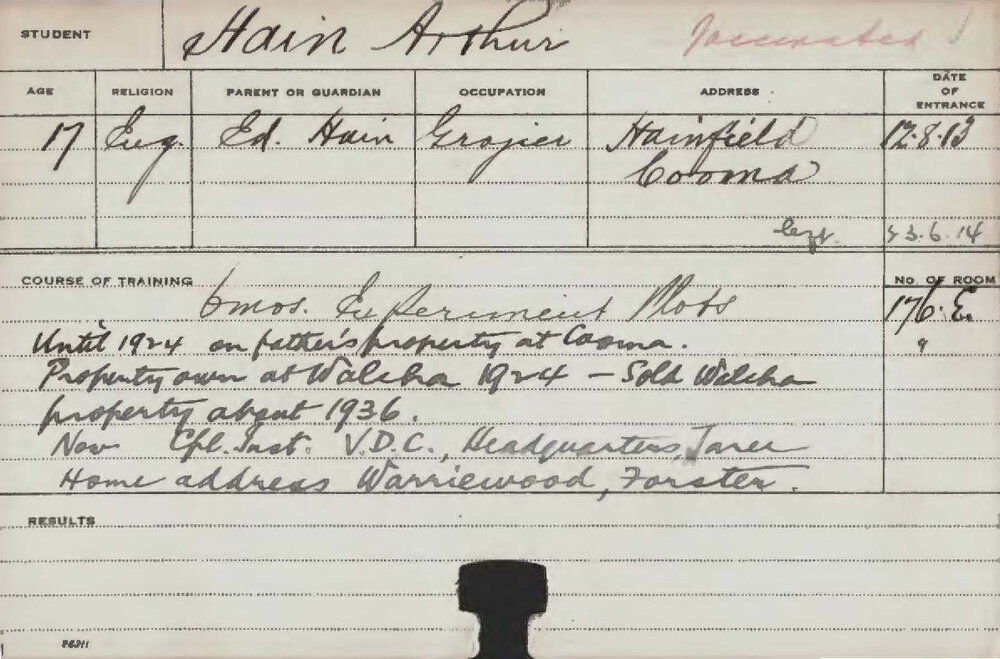 STUDENT Hain Arthur Vaccinated
AGE RELIGION PARENT OR GUARDIAN OCCUPATION ADDRESS DATE OF ENTRANCE
17 Eng. Ed. Hain Grazier Hainfield 12.8.13
Cooma
left 23.6.14
COURSE OF TRAINING No. OF ROOM
6mos. Experiment Plots 176.E.
Until 1924 on father's property at Cooma.
Property own at Walcha 1924 – Sold Walcha
property about 1936.
Now Cpl. Inst. V.D.C., Headquarters, Taree
Home address Warriewood, Forster.
RESULTS